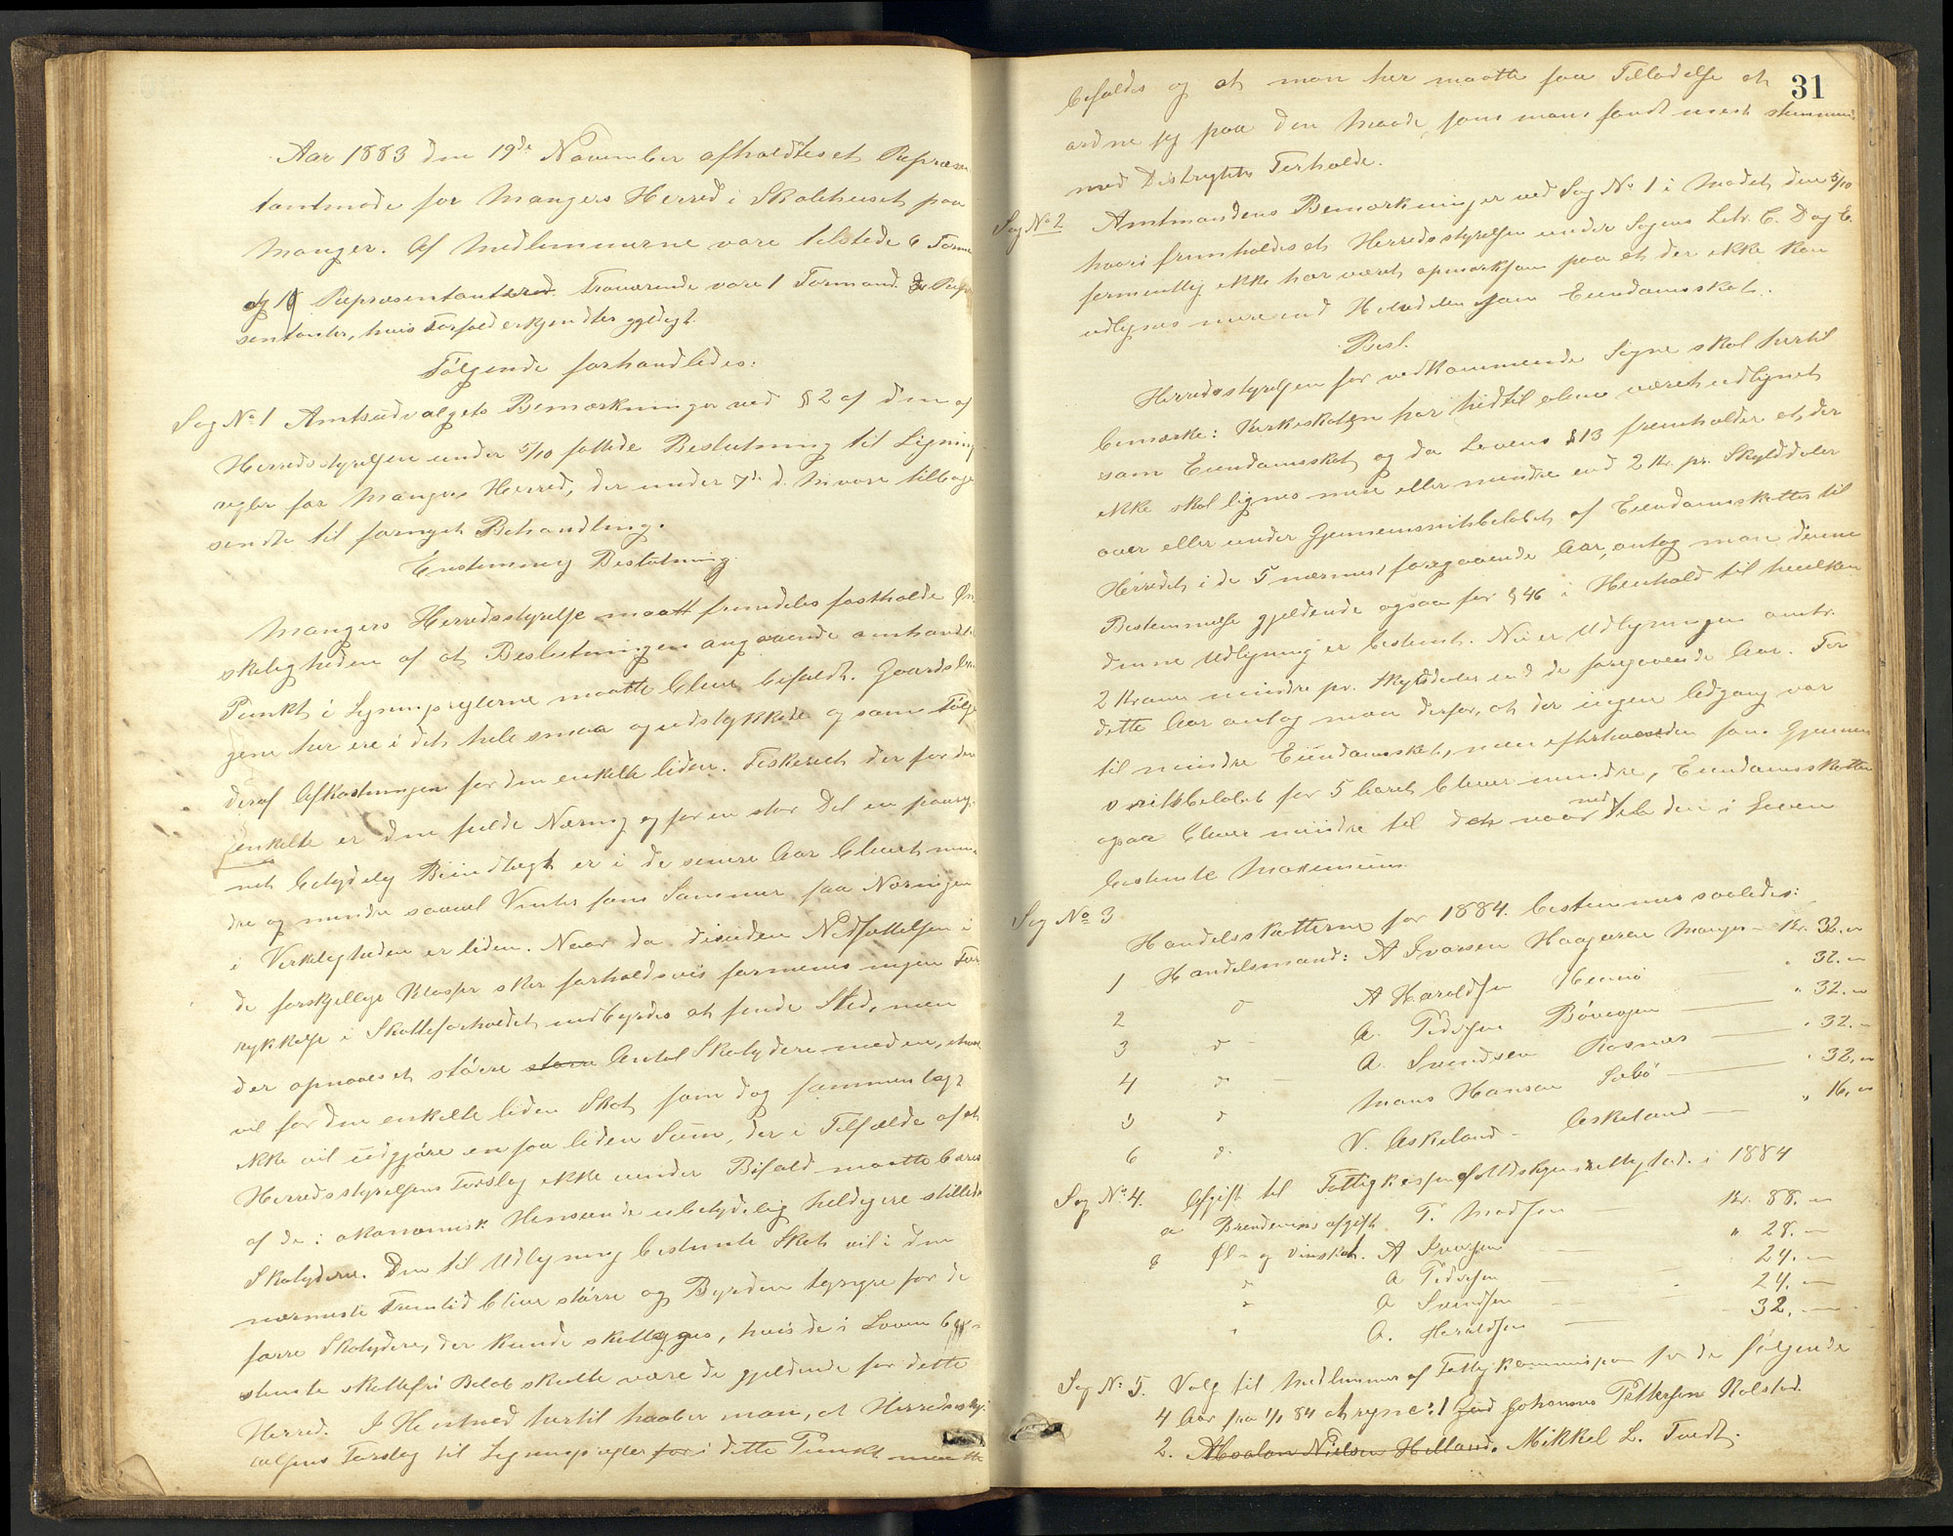 Aar 1883 den 19de November afholdtes et Repræsen
tantmøde for Mangers Herred i Skolehuset paa
Manger. Af Medlemmerne vare tilstede 6 Formæ
og 10 Repræsentanter. Fraværende vare 1 Formand. 2 Repræ
sentanter, hvis Forfald erkjendtes gyldigt.
Følgende forhandledes:
Sag No 1 Amtsudvalgets Bemærkninger ved § 2 af den af
Herredsstyrelsen under 5/10 fattede Beslutning til Lignings
regler for Mangers Herred, der under 7de d. M. vare tilbage
sendte til fornyet Behandling.
Enstemmig Beslutning.
Mangers Herredsstyrelse maatte fremdeles fastholde Øn
skeligheden af at Beslutningen angaaende omhandle
Punkt i Ligningsreglerne maatte blive bifaldt. Gaardsbru
gene her ere i det hele smaa og udstykkede og som Følge
deraf Afkastningen for den enkelte liden. Fiskeriet der for den
enkelte er den fulde Næring og for en stor Del en
net betydelig Biindtægt er i de senere Aar blevet min
dre og mindre saavel Vinter som Sommer saa Næringen
i Virkeligheden er liden. Naar da desuden Nedsættelsen i
de forskjellige Klasser sker forholdsvis formenes ingen For
rykkelse i Skatteforholdet indbyrdes at finde Sted, men
der opnaaes et større større Antal Skatydere med en, etwas
vil for den enkelte liden Skat som dog sammenlagt
ikke vil udgjøre en saa liden Sum, der i Tilfælde af at
Herredsstyrelsens Forslag ikke vinder Bifald maatte bæres
af de i økonomisk Henseende ubetydelig heldigere stillede
Skatydere. Den til Udligning bestemte Skat vil i den
nærmeste Fremtid blive større og Byrden tyngre for de
færre Skatydere, der kunde skatlægges, hvis de i Loven be
stemte skattefri Beløb skulde være de gjeldende for dette
Herred. I Henhold hertil haaber man, at Herredssty
relsens Forslag til Ligningsregler for i dette Punkt maatte
31
bifaldes og at man her maatte faa Tilladelse at
ordne sig paa den Maade, som man fandt mest stemmende
med Distriktets Forholde.
Sag No 2 Amtmandens Bemærkninger ved Sag No 1 i Mødet den 5/10
hvori fremholdes at Herredsstyrelsen under Sagens Litr. C. D og E.
formentlig ikke har været opmærksom paa at der ikke kan
udlignes mere end Halvdelen som Eiendomsskat.
Besl.
Herredsstyrelsen for vedkommende Sogne skal hertil
bemærke: Kirkeskatten har hidtil alene været udlignet
som Eiendomsskat og da Lovens § 13 fremholder at der
ikke skal lignes mere eller mindre end 2 Kr. pr. Skylddaler
over eller under Gjennemsnitsbeløbet af Eiendomsskatten til
Herredet i de 5 nærmest foregaaende Aar, antog man denne
Bestemmelse gjeldende ogsaa for § 46 i Henhold til hvilken
denne Udligning er bestemt. Nu er Udligningen omtr.
2 Kroner mindre pr. Skylddaler end de foregaaende Aar. For
dette Aar antog man derfor, at der ingen Adgang var
til mindre Eiendomsskat, men efterhaanden som Gjennem
snitsbeløbet for 5 Aaret bliver mindre, Eiendomsskatten
ogsaa bliver mindre til den naar ned til den i Loven
bestemte Maximum.
Sag No 3
Handelsskatterne for 1884. bestemmes saaledes:
1 Handelsmand: A Ivarsen Haagøren Manger - Kr. 32. "
2 do A Haroldsen Hennø " 32. "
3 do A. Pedersen Bøvaagen " 32. "
4 do A. Svendsen Rosnæs " 32. "
5 do Mons Hansen Sæbø " 32. "
6 do V. Askeland - Askeland " 16. "
Sag No 4. Afgift til Fattigkassen i 1884
a Brændevinsafgift T. Madsen Kr. 88. "
b Øl- og Vinskat. A Ivarsen " 28. "
" A Pedersen 24. "
" A Svendsen 24. "
" A. Heraldsen 32. "
Sag No 5. Valg til Medlemmer af Fattigkommissionen for de følgende
4 Aar fra 1/1 84 at regne: 1 Johannes Pettersen Kolstad.
2. Nielsen Helland. Mikkel L. Tvedt.